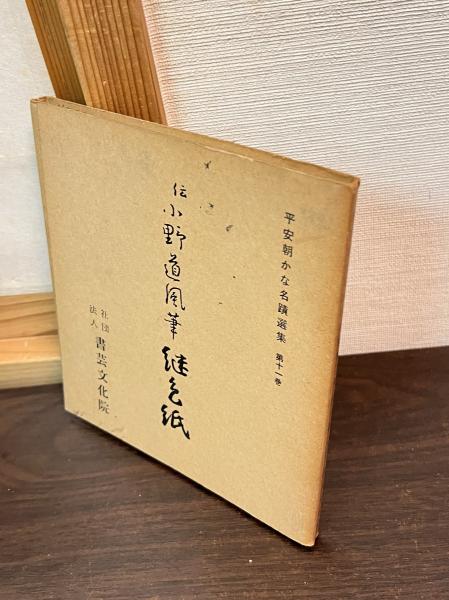 平安朝かな名蹟選集 第十一巻
伝小野道風筆 継色紙
社団法人 書芸文化院